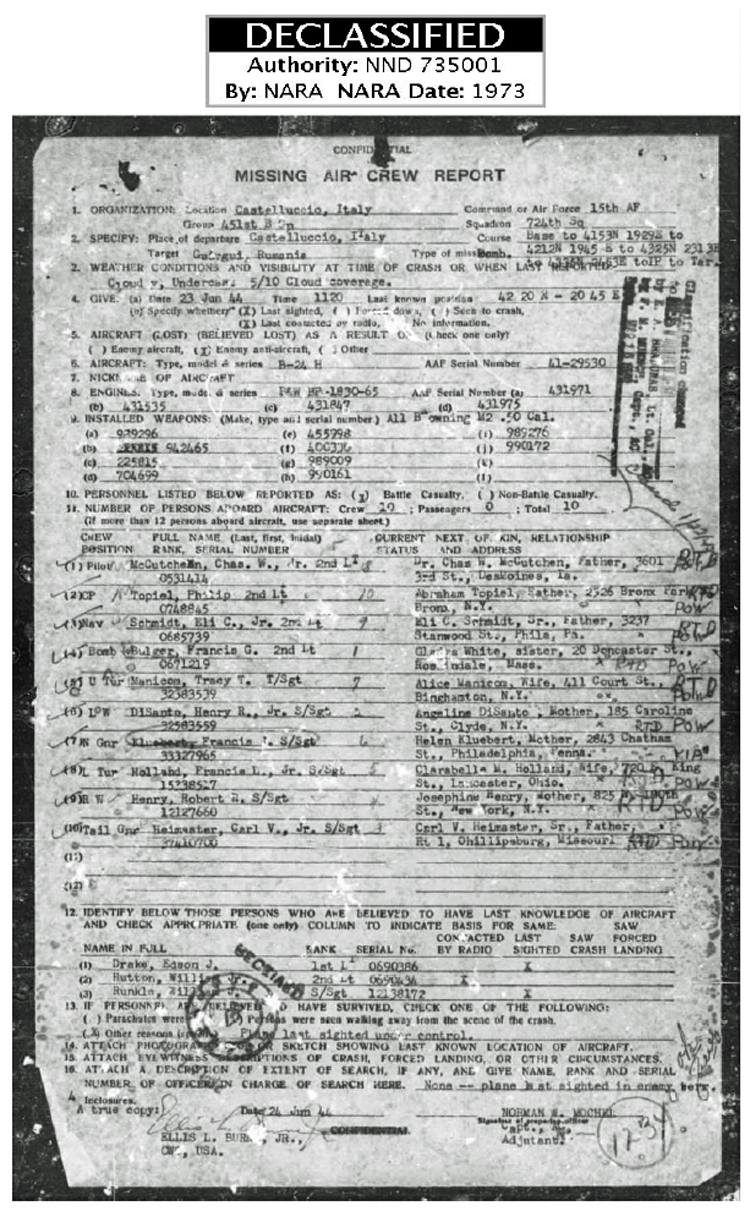 DECLASSIFIED
Authority: NND 735001
By: NARA NARA Date: 1973
CONFIDENTIAL
MISSING AIR CREW REPORT
1. ORGANIZATION: Location Castelluccio, Italy Command or Air Force 15th AF
Group 451st B Squadron 724th Sq
2. SPECIFY: Place of departure Castelluccio, Italy Course Base to 4153N 1929E to
Target Rumania Type of mission Bomb. 4212N 1945 E to 4325N
to IP to Tar.
2. WEATHER CONDITIONS AND VISIBILITY AT TIME OF CRASH OR WHEN LAST REPORTED
5/10 Cloud coverage.
4. GIVE: (a) Date 23 Jun 44 Time 1120 Last known position 42 20 N - 20 45 E
(b) Specify whether (X) Last sighted, ( ) Forced down, ( ) Seen to crash,
(X) Last contacted by radio, No information.
5. AIRCRAFT (LOST) (BELIEVED LOST) AS A RESULT OF (Check one only)
( ) Enemy aircraft, (X) Enemy anti-aircraft, ( ) Other
6. AIRCRAFT: Type, model & series B-24 H AAF Serial Number 41-29530
7. NICKNAME OF AIRCRAFT
8. ENGINES. Type, model & series -1830-65 AAF Serial Number (a) 431971
(b) 431535 (c) 431847 (d) 431975
9. INSTALLED WEAPONS: (Make, type and serial number) All Browning M2 .50 Cal.
(a) 939296 (e) 455998 (i) 989276
(b) 942465 (f) (j) 990172
(c) 225815 (g) 989009 (k)
(d) 704699 (h) 990161 (l)
10. PERSONNEL LISTED BELOW REPORTED AS: (X) Battle Casualty, ( ) Non-Battle Casualty.
11. NUMBER OF PERSONS ABOARD AIRCRAFT: Crew 10 ; Passengers 0 ; Total 10
(If more than 12 persons aboard aircraft, use separate sheet.)
CREW FULL NAME (Last, first, initial) CURRENT NEXT OF KIN, RELATIONSHIP
POSITION RANK, SERIAL NUMBER STATUS AND ADDRESS
(1) Pilot McCutchen, Chas. W., Jr. 2nd Lt 8 Dr. Chas W. McCutchen, Father, 3601 RTD
0531414 3rd St., Desmoines, Ia.
(2) CP Topiel, Philip 2nd Lt 10 Abraham Topiel, Father, 2526 Bronx Park RTD
0748845 Bronx, N.Y. POW
(3) Nav Schmidt, Eli C., Jr. 2nd Lt 9 Eli C. Schmidt, Sr., Father, 3237 RTD
0685739 Stanwood St., Phila, Pa. POW
(4) Bomb Bulger, Francis G. 2nd Lt 1 Gladys White, sister, 20 Doncaster St.,
0671219 Roslindale, Mass. RTD POW
(5) U Tur Manicom, Tracy T. T/Sgt 7 Alice Manicom, Wife, 411 Court St., RTD
32583539 Binghamton, N.Y. POW
(6) DiSanto, Henry R., Jr. S/Sgt 2 Angeline DiSanto, Mother, 185 Caroline
32583559 St., Clyde, N.Y. RTD POW
(7) N Gnr Kluebert, Francis S/Sgt 6 Helen Kluebert, Mother, 2843 Chatham
33327965 St., Philadelphia, Penna. KIA
(8) L Tur Holland, Francis L., Jr. S/Sgt 5 Clarabelle M. Holland, Wife, 720 King
St., Lancaster, Ohio. RTD POW
(9) R W Henry, Robert R. S/Sgt 4 Josephine Henry, Mother, 825
12127660 St., New York, N.Y. RTD POW
(10) Tail Gnr Heimaster, Carl V., Jr. S/Sgt 3 Carl V. Heimaster, Sr., Father,
37410700 Rt 1, Missouri RTD POW
(11)
(12)
12. IDENTIFY BELOW THOSE PERSONS WHO ARE BELIEVED TO HAVE LAST KNOWLEDGE OF AIRCRAFT
AND CHECK APPROPRIATE (one only) COLUMN TO INDICATE BASIS FOR SAME: SAW
CONTACTED LAST SAW FORCED
NAME IN FULL RANK SERIAL No. BY RADIO SIGHTED CRASH LANDING
(1) Drake, Edson J. 1st Lt 0690386 X
(2) Hutton, 2nd Lt X
(3) Runkle, S/Sgt 12138172 X
13. IF PERSONNEL ARE BELIEVED TO HAVE SURVIVED, CHECK ONE OF THE FOLLOWING:
( ) Parachutes were Persons were seen walking away from the scene of the crash.
(X) Other reasons Plane last sighted under control.
14. ATTACH PHOTOGRAPH OR SKETCH SHOWING LAST KNOWN LOCATION OF AIRCRAFT.
15. ATTACH EYEWITNESS DESCRIPTIONS OF CRASH, FORCED LANDING, OR OTHER CIRCUMSTANCES.
16. ATTACH A DESCRIPTION OF EXTENT OF SEARCH, IF ANY, AND GIVE NAME, RANK AND SERIAL
NUMBER OF OFFICER IN CHARGE OF SEARCH HERE. None -- plane last sighted in enemy
4 Inclosures.
A true copy: Date 24 Jun 44 NORMAN
Signature of preparing officer
CONFIDENTIAL Capt.,
ELLIS L. JR., Adjutant
USA.